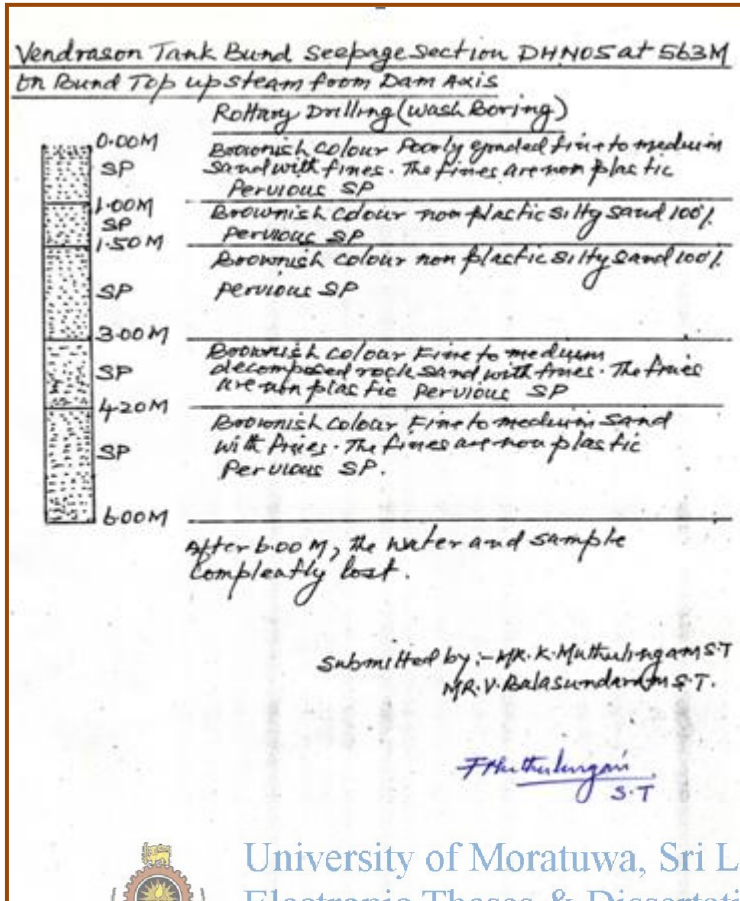 Vendrason Tank Bund Seepage Section DHNO5 at 563M
on Bund Top upsteam from Dam Axis
Rottary Drilling (Wash Boring)
0.00M
SP
Brownish Colour Poorly graded fine to medium
Sand with fines. The fines are non plastic
Pervious SP
1.00M
SP
Brownish Colour non plastic Silty Sand 100%
Pervious SP
1.50M
SP
Brownish Colour non plastic Silty Sand 100%
pervious SP
3.00M
SP
Brownish Colour Fine to medium
decomposed rock sand with fines. The fines
are non plastic Pervious SP
4.20M
SP
Brownish Colour Fine to medium Sand
with fines. The fines are non plastic
Pervious SP.
6.00M
After 6.00 M, the Water and Sample
Compleatly lost.
Submitted by :- MR. K. Muthulingam S.T
MR. V. Balasundaram S.T.
S.T
University of Moratuwa, Sri L
Electronic Theses & Dissertati